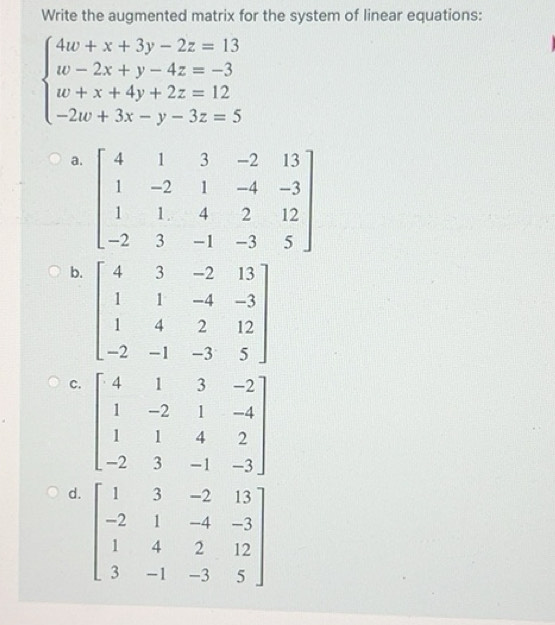 Write the augmented matrix for the system of linear equations:
4w + x + 3y − 2z = 13
w − 2x + y − 4z = −3
w + x + 4y + 2z = 12
−2w + 3x − y − 3z = 5
a. 4 1 3 −2 13
1 −2 1 −4 −3
1 1 4 2 12
−2 3 −1 −3 5
b. 4 3 −2 13
1 1 −4 −3
1 4 2 12
−2 −1 −3 5
c. 4 1 3 −2
1 −2 1 −4
1 1 4 2
−2 3 −1 −3
d. 1 3 −2 13
−2 1 −4 −3
1 4 2 12
3 −1 −3 5